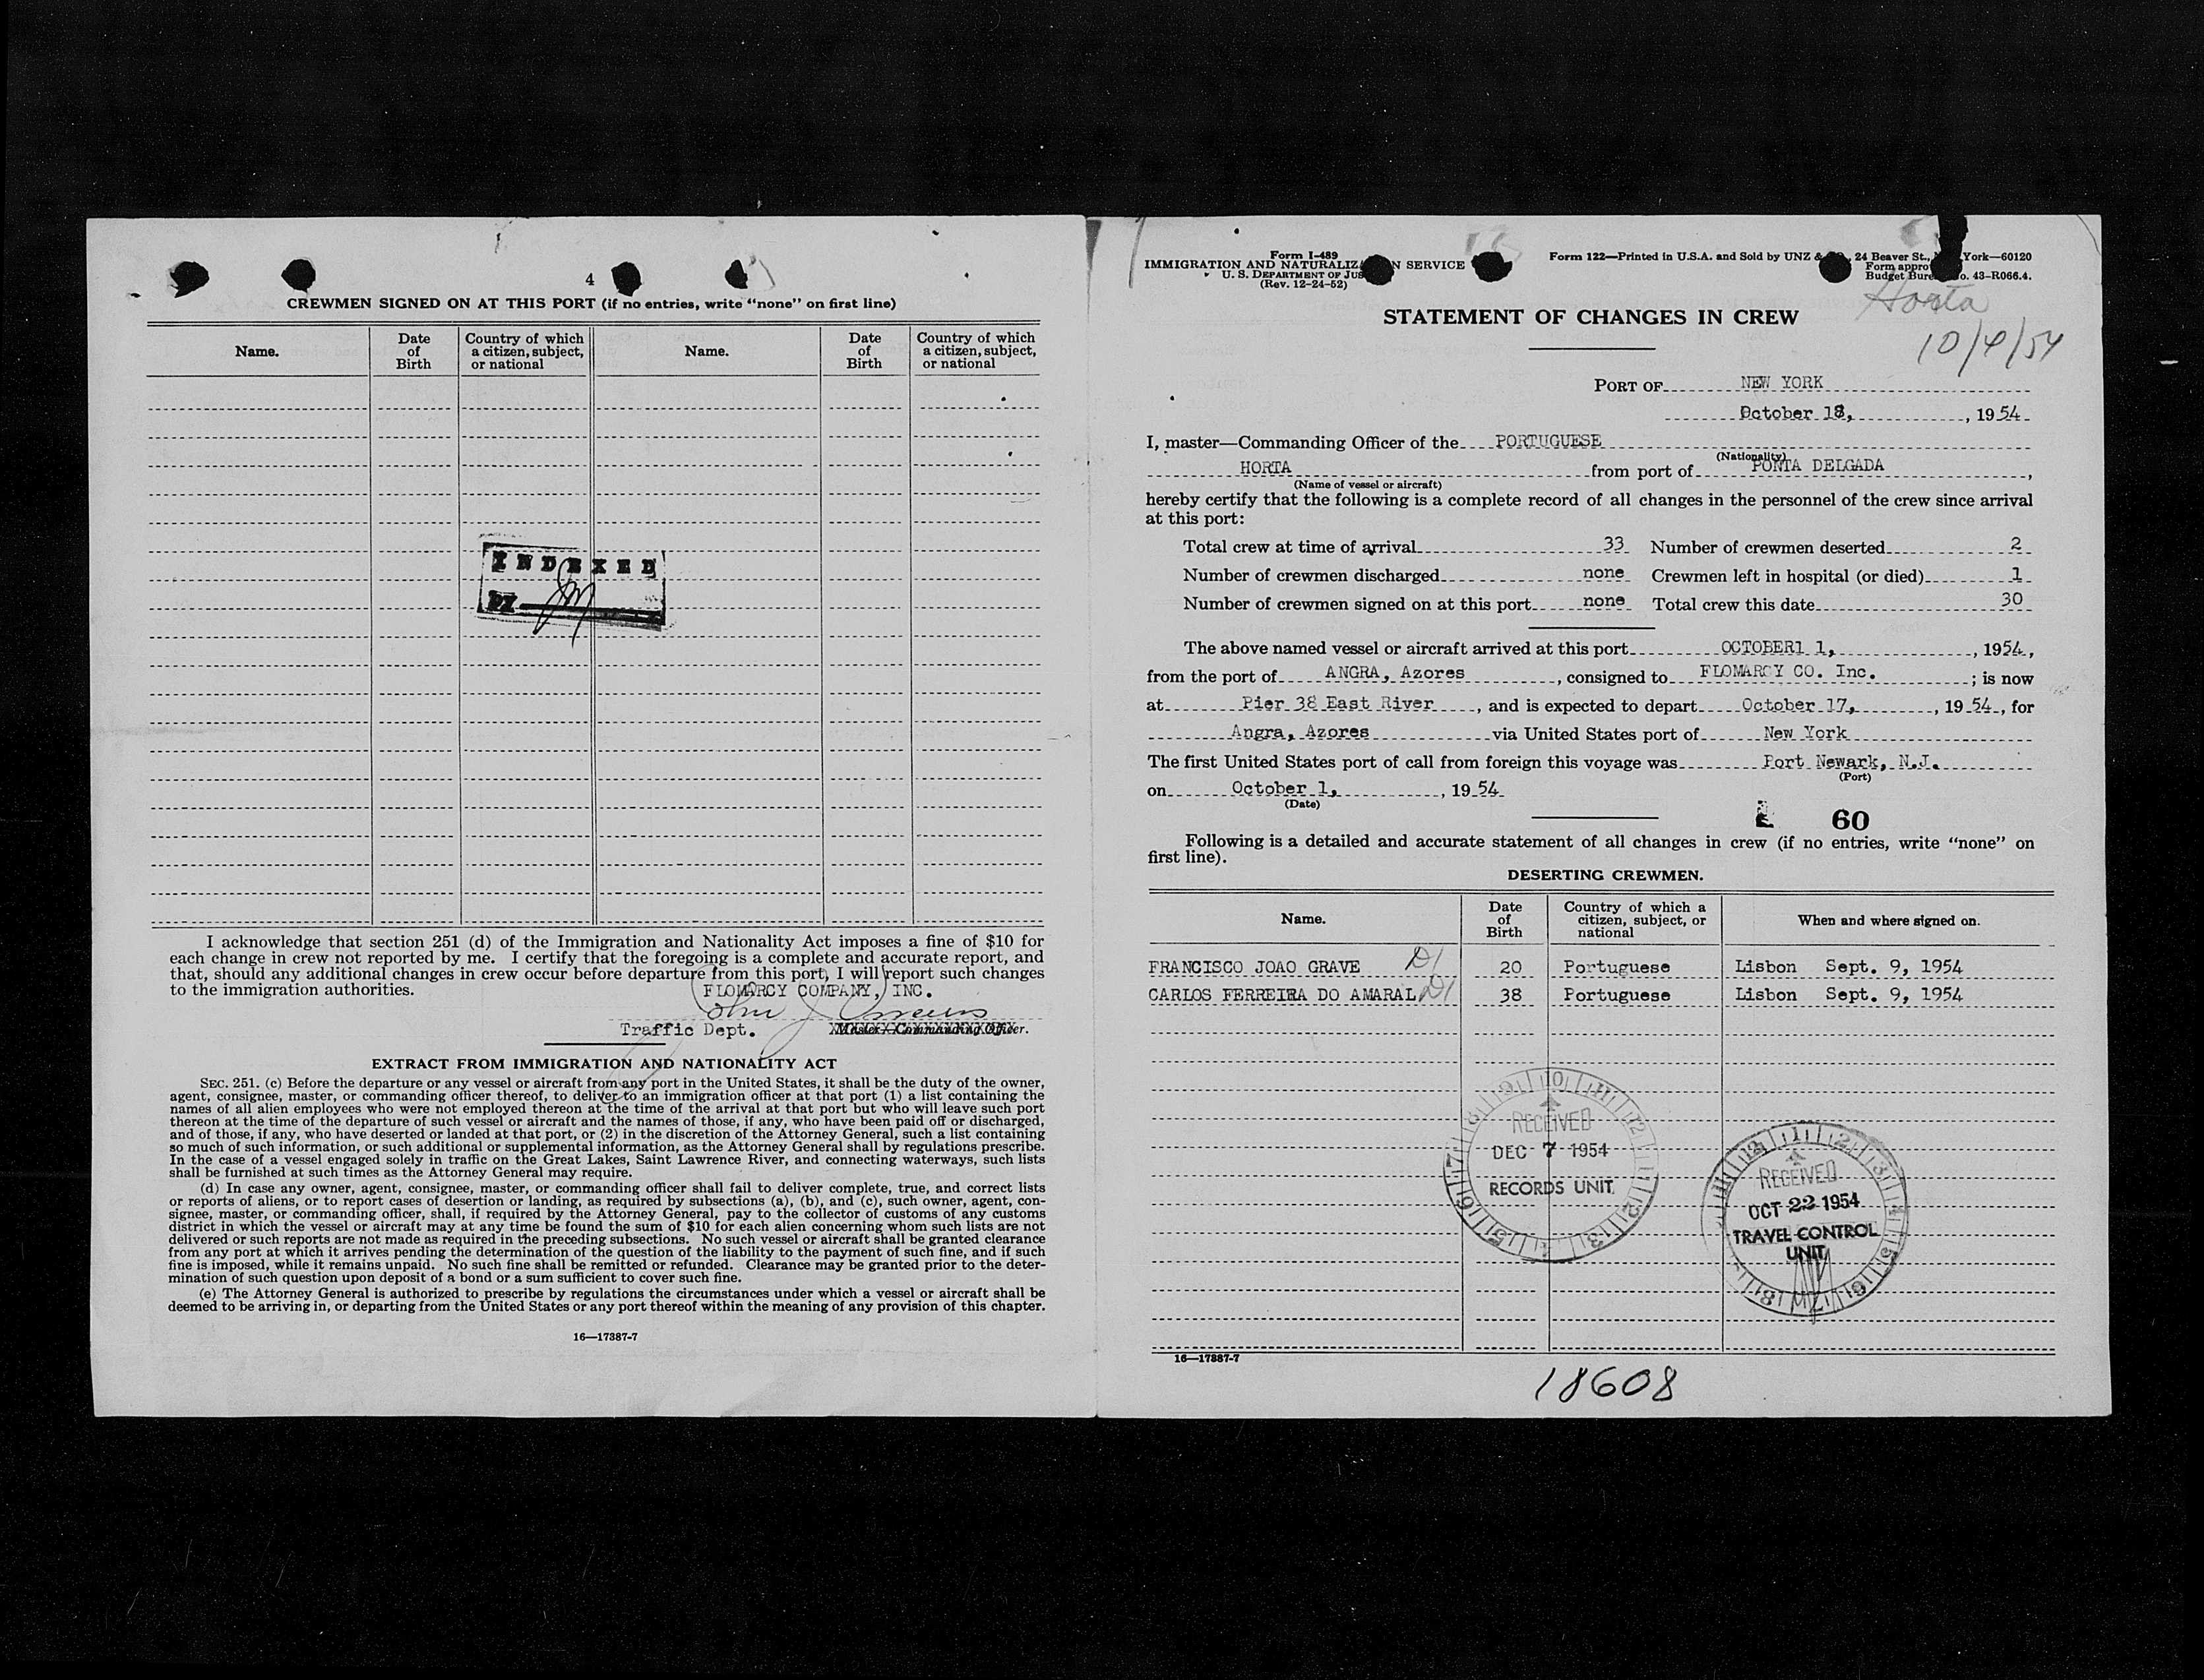 4
CREWMEN SIGNED ON AT THIS PORT (if no entries, write “none” on first line)
Name. Date of Birth Country of which a citizen, subject, or national Name. Date of Birth Country of which a citizen, subject, or national
INDEXED
BY
I acknowledge that section 251 (d) of the Immigration and Nationality Act imposes a fine of $10 for
each change in crew not reported by me. I certify that the foregoing is a complete and accurate report, and
that, should any additional changes in crew occur before departure from this port, I will report such changes
to the immigration authorities.
FLOMARCY COMPANY, INC.
John J.
Traffic Dept. Master—Commanding Officer.
EXTRACT FROM IMMIGRATION AND NATIONALITY ACT
SEC. 251. (c) Before the departure or any vessel or aircraft from any port in the United States, it shall be the duty of the owner,
agent, consignee, master, or commanding officer thereof, to deliver to an immigration officer at that port (1) a list containing the
names of all alien employees who were not employed thereon at the time of the arrival at that port but who will leave such port
thereon at the time of the departure of such vessel or aircraft and the names of those, if any, who have been paid off or discharged,
and of those, if any, who have deserted or landed at that port, or (2) in the discretion of the Attorney General, such a list containing
so much of such information, or such additional or supplemental information, as the Attorney General shall by regulations prescribe.
In the case of a vessel engaged solely in traffic on the Great Lakes, Saint Lawrence River, and connecting waterways, such lists
shall be furnished at such times as the Attorney General may require.
(d) In case any owner, agent, consignee, master, or commanding officer shall fail to deliver complete, true, and correct lists
or reports of aliens, or to report cases of desertion or landing, as required by subsections (a), (b), and (c), such owner, agent, con-
signee, master, or commanding officer, shall, if required by the Attorney General, pay to the collector of customs of any customs
district in which the vessel or aircraft may at any time be found the sum of $10 for each alien concerning whom such lists are not
delivered or such reports are not made as required in the preceding subsections. No such vessel or aircraft shall be granted clearance
from any port at which it arrives pending the determination of the question of the liability to the payment of such fine, and if such
fine is imposed, while it remains unpaid. No such fine shall be remitted or refunded. Clearance may be granted prior to the deter-
mination of such question upon deposit of a bond or a sum sufficient to cover such fine.
(e) The Attorney General is authorized to prescribe by regulations the circumstances under which a vessel or aircraft shall be
deemed to be arriving in, or departing from the United States or any port thereof within the meaning of any provision of this chapter.
16—17387-7
Form I-489
IMMIGRATION AND NATURALIZA N SERVICE
U. S. DEPARTMENT OF JUS
(Rev. 12-24-52)
Form 122—Printed in U.S.A. and Sold by UNZ & , 24 Beaver St., York—60120
Form appro
Budget Bure o. 43-R066.4.
Horta
10/4/54
STATEMENT OF CHANGES IN CREW
PORT OF NEW YORK
October 18, , 1954
I, master—Commanding Officer of the PORTUGUESE
(Nationality)
HORTA from port of PONTA DELGADA ,
(Name of vessel or aircraft)
hereby certify that the following is a complete record of all changes in the personnel of the crew since arrival
at this port:
Total crew at time of arrival 33 Number of crewmen deserted 2
Number of crewmen discharged none Crewmen left in hospital (or died) 1
Number of crewmen signed on at this port none Total crew this date 30
The above named vessel or aircraft arrived at this port OCTOBER1 1, , 1954,
from the port of ANGRA, Azores , consigned to FLOMARCY CO. Inc. ; is now
at Pier 38 East River , and is expected to depart October 17, , 1954, for
Angra, Azores via United States port of New York
The first United States port of call from foreign this voyage was Port Newark, N.J.
(Port)
on October 1, , 1954
(Date)
60
Following is a detailed and accurate statement of all changes in crew (if no entries, write “none” on
first line).
DESERTING CREWMEN.
Name. Date of Birth Country of which a citizen, subject, or national When and where signed on.
FRANCISCO JOAO GRAVE D1 20 Portuguese Lisbon Sept. 9, 1954
CARLOS FERREIRA DO AMARAL D1 38 Portuguese Lisbon Sept. 9, 1954
RECEIVED
DEC 7 1954
RECORDS UNIT
RECEIVED
OCT 22 1954
TRAVEL CONTROL
UNIT
16—17387-7
18608